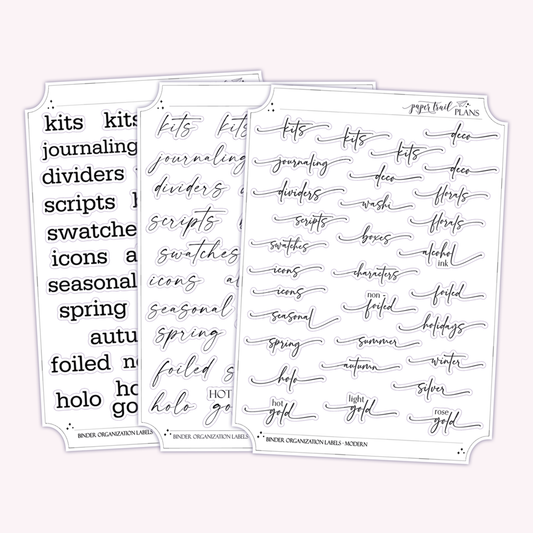 kits kits
journaling
dividers
scripts
swatches
icons
seasonal
spring
autu
foiled
holo
BINDER ORGANIZATION LABELS
kits kits
journaling
dividers
scripts
swatches
icons
seasonal
spring
foiled
holo HOT
BINDER ORGANIZATION LABELS
paper trail
PLANS
kits kits deco
journaling kits deco
deco
dividers washi florals
scripts florals
swatches boxes alcohol
ink
icons characters
icons non foiled foiled
seasonal holidays
spring summer
autumn winter
holo silver
hot gold light gold rose gold
BINDER ORGANIZATION LABELS - MODERN